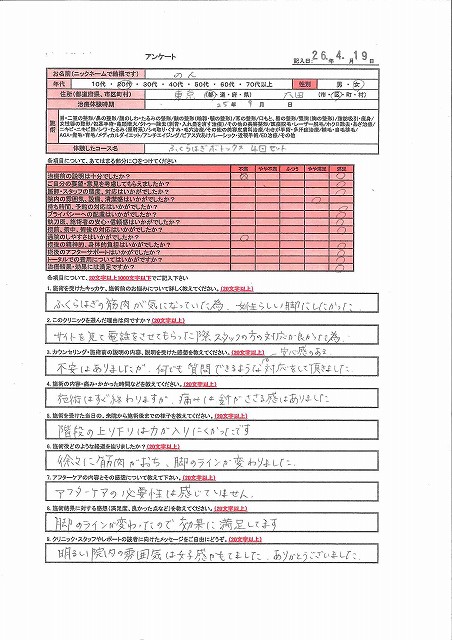 アンケート
記入日: 26. 4. 19日
お名前(ニックネームで結構です) のん
年代 10代・20代・30代・40代・50代・60代・70代以上 性別 男・女
住所(都道府県、市区町村) 東京 (都・道・府・県) 大田 (市・区・町・村)
治療体験時期 25年 9月
施術
体験したコース名 ふくらはぎボトックス 4回セット
各項目について、あてはまる部分に○をつけてください
不満 やや不満 ふつう やや満足 満足
治療前の説明は十分でしたか?
ご自分の要望・意見を考慮してもらえましたか?
医師・スタッフの態度、対応はいかがでしたか?
院内の雰囲気、設備、清潔感はいかがでしたか?
待ち時間、予約の対応はいかがでしたか?
プライバシーへの配慮はいかがでしたか?
執刀医、施術者の安心・信頼感はいかがでしたか?
術前、術中、術後の対応はいかがでしたか?
通院のしやすさはいかがでしたか?
術後の精神的、身体的負担はいかがでしたか?
術後のアフターサポートはいかがでしたか?
トータルでの費用についてはいかがですか?
治療結果・効果には満足ですか?
各項目について、20文字以上1000文字以下でご記入下さい
1. 施術を受けたキッカケ、施術前のお悩みについて詳しく教えてください。(20文字以上)
ふくらはぎの筋肉が気になっていた為、女性らしい脚にしたかった
2. このクリニックを選んだ理由は何ですか?(20文字以上)
サイトを見て電話をさせてもらった際、スタッフの方の対応が良かった為
3. カウンセリング・施術前の説明の内容、説明を受けた感想を教えてください。(20文字以上)
安心感のある
不安はありましたが、何でも質問できるような対応をして頂きました
4. 施術の内容・痛み・かかった時間などを教えてください。(20文字以上)
施術はすぐ終わりますが、痛みは針がささる感はありました
5. 施術を受けた当日の、来院から施術後までの様子を教えてください。(20文字以上)
階段の上り下りは力が入りにくかったです
6. 施術後どのような経過を辿りましたか?(20文字以上)
徐々に筋肉がおち、脚のラインが変わりました
7. アフターケアの内容とその感想について教えて下さい。(20文字以上)
アフターケアの必要性は感じていません
8. 施術結果に対する感想(満足度、良かった点など)を教えてください。(20文字以上)
脚のラインが変わったので効果に満足してます
9. クリニック・スタッフやレポートの読者に向けたメッセージをご自由にどうぞ。(20文字以上)
明るい院内の雰囲気は女子感がもてました。ありがとうございました